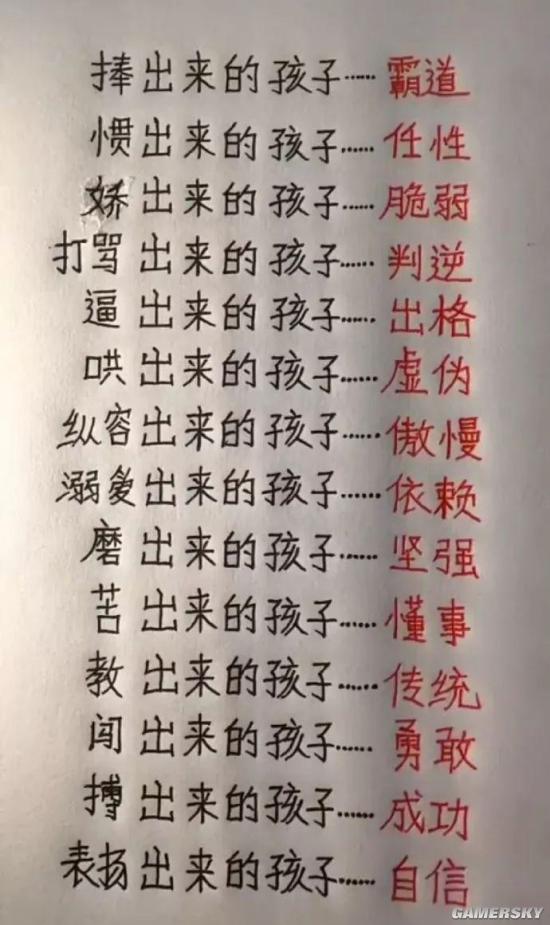 捧出来的孩子……霸道
惯出来的孩子……任性
娇出来的孩子……脆弱
打骂出来的孩子……判逆
逼出来的孩子……出格
哄出来的孩子……虚伪
纵容出来的孩子……傲慢
溺爱出来的孩子……依赖
磨出来的孩子……坚强
苦出来的孩子……懂事
教出来的孩子……传统
闯出来的孩子……勇敢
搏出来的孩子……成功
表扬出来的孩子……自信
GAMERSKY